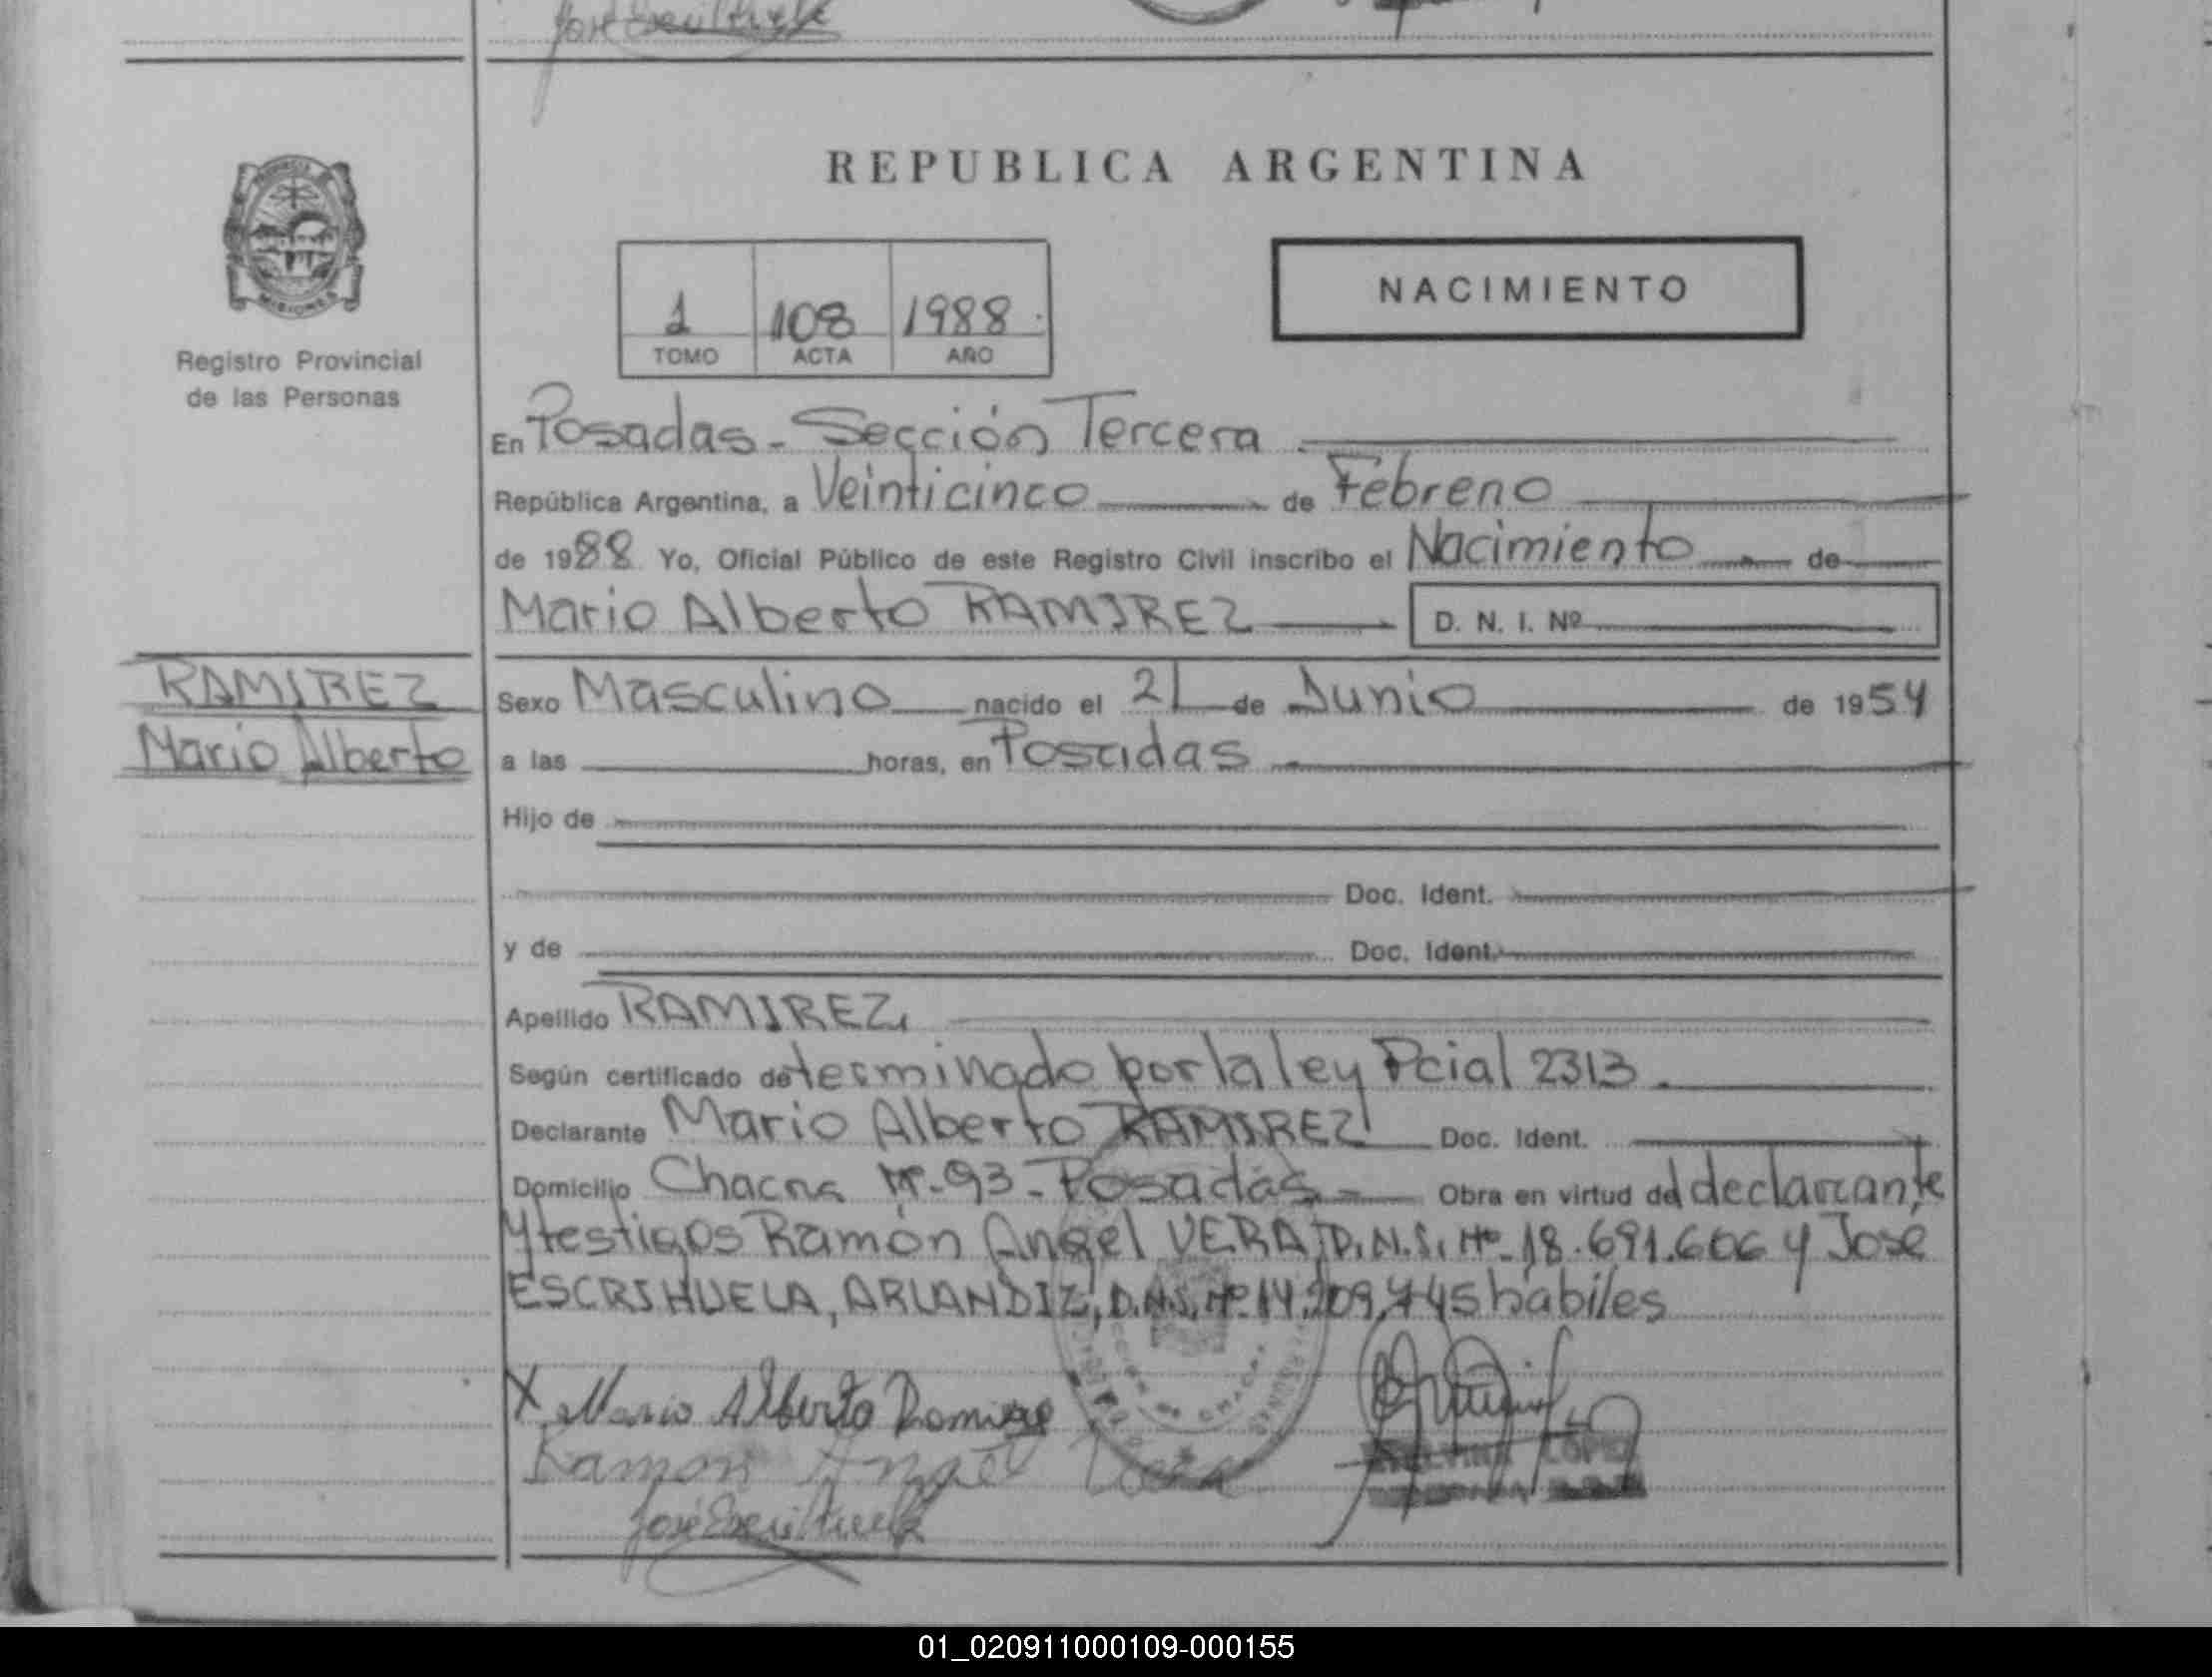 REPUBLICA ARGENTINA
NACIMIENTO
1 108 1988
TOMO ACTA AÑO
MISIONES
Registro Provincial
de las Personas
En Posadas - Sección Tercera
República Argentina, a Veinticinco de Febrero
de 1988 Yo, Oficial Público de este Registro Civil inscribo el Nacimiento de
Mario Alberto RAMIREZ D. N. I. Nº
RAMIREZ
Mario Alberto
Sexo Masculino nacido el 21 de Junio de 1954
a las horas, en Posadas
Hijo de
Doc. Ident.
y de Doc. Ident.
Apellido RAMIREZ
Según certificado determinado por la ley Pcial 2313.
Declarante Mario Alberto RAMIREZ Doc. Ident.
Domicilio Chacra Nº-93-Posadas- Obra en virtud del declarante
y testigos Ramón Angel VERA, D.N.I. Nº-18.691.606 y José
ESCRIHUELA, ARLANDIZ, D.N.I. Nº 14.209.445 hábiles
X Mario Alberto Ramirez
Ramon Angel Vera
José Escrihuela
01_020911000109-000155